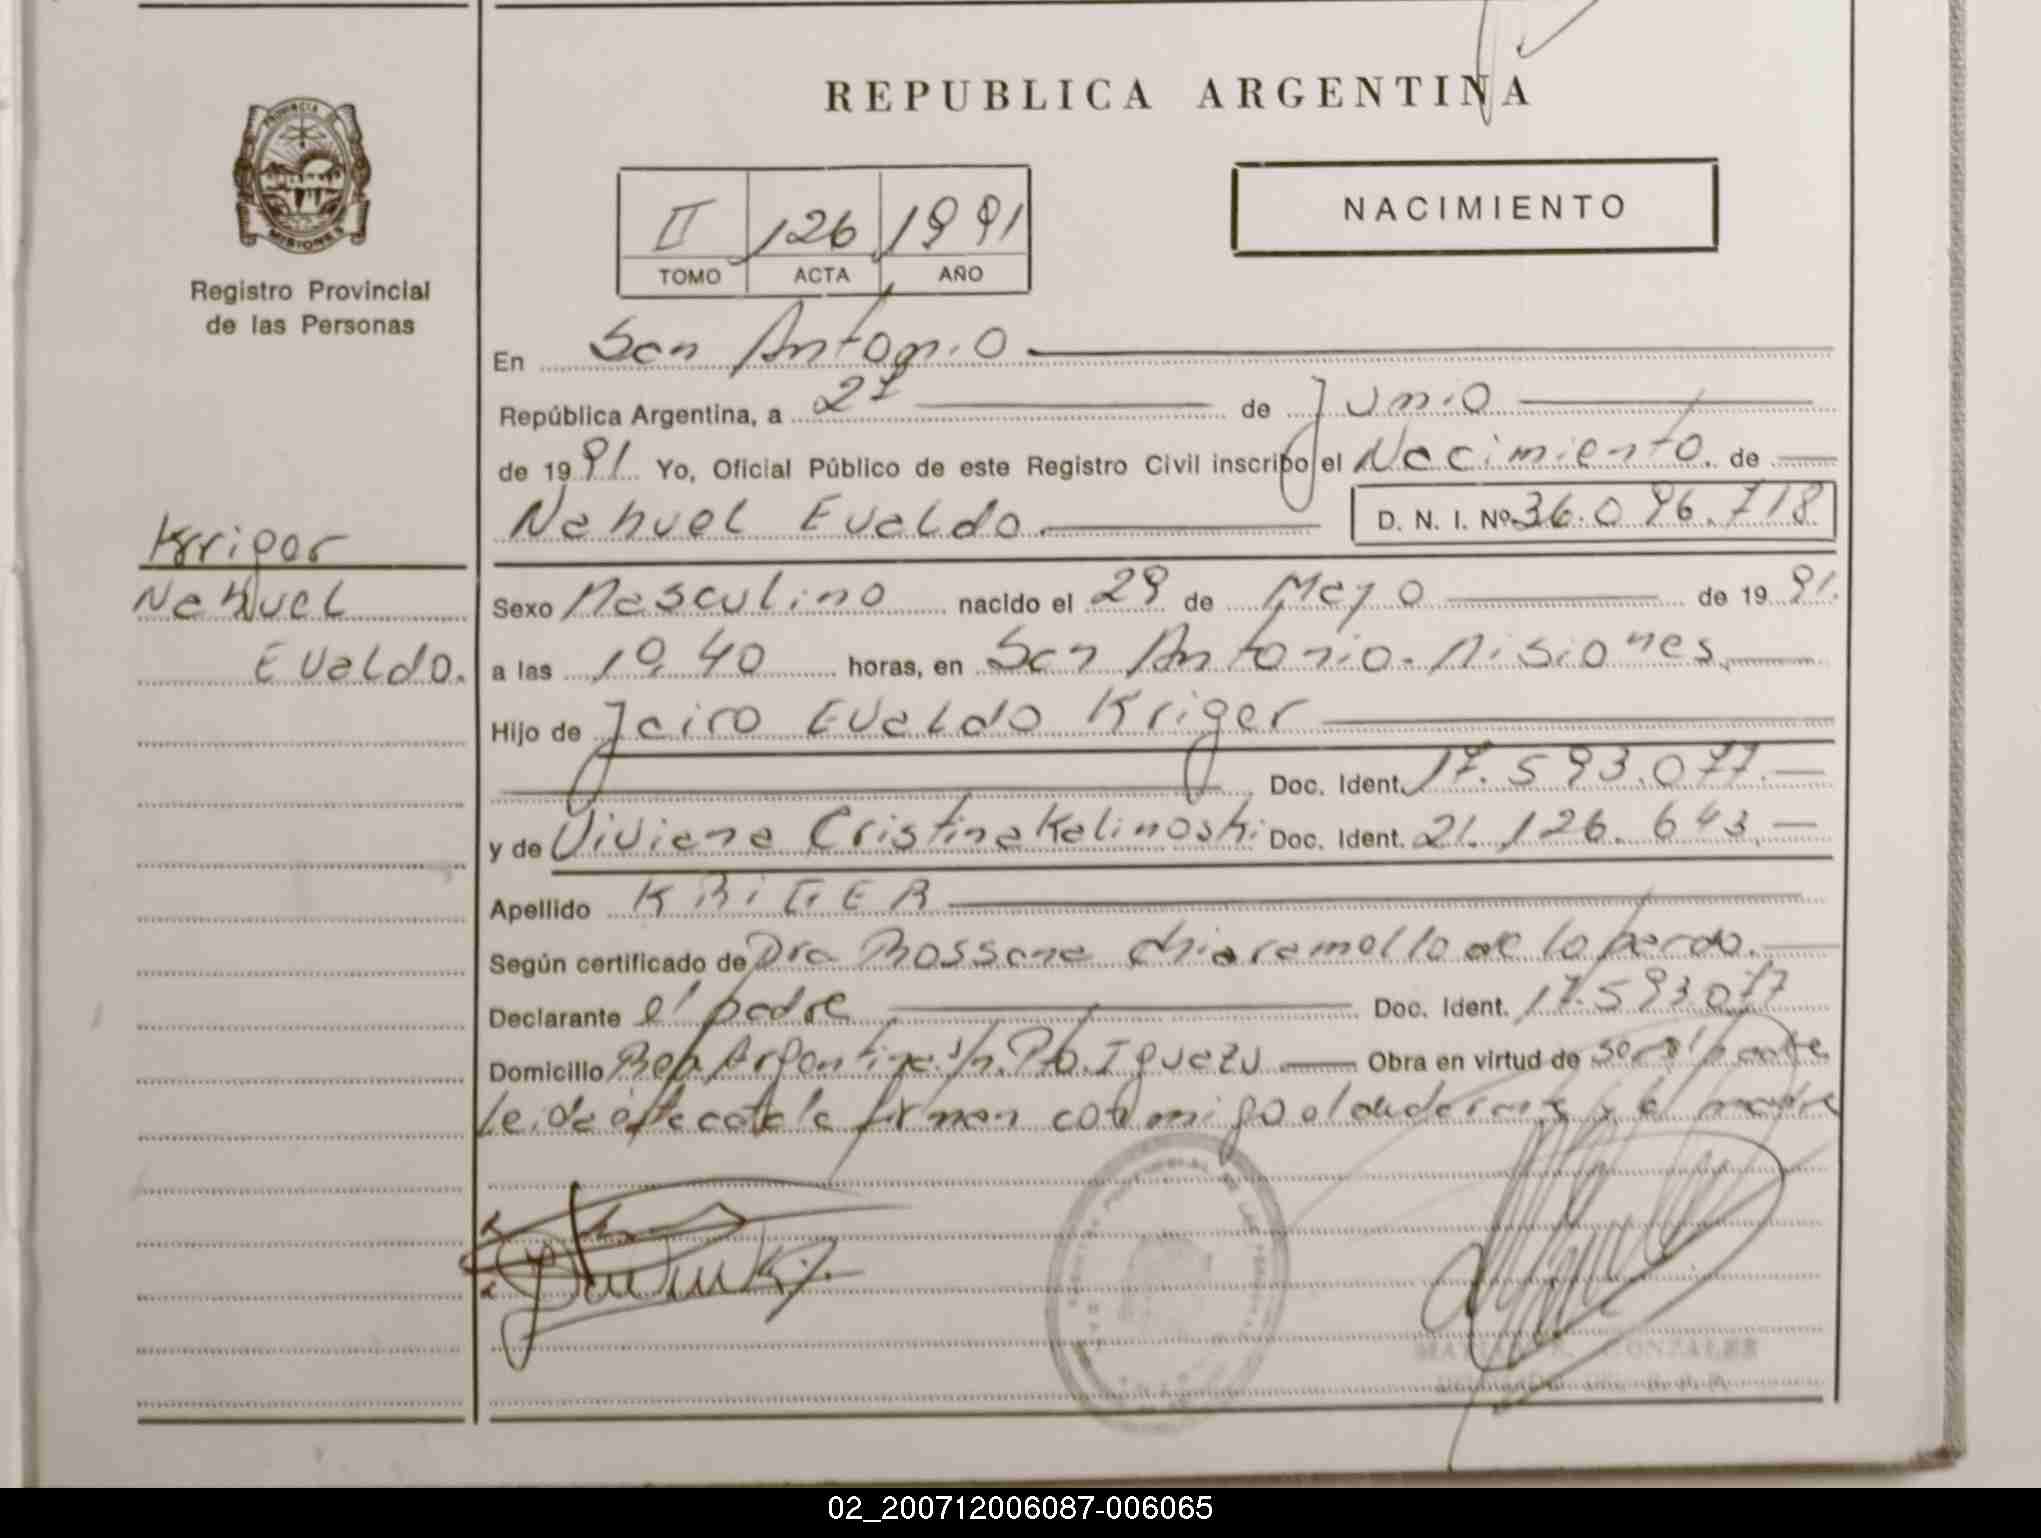 REPUBLICA ARGENTINA
PROVINCIA DE
MISIONES
Registro Provincial
de las Personas
II 126 1991
TOMO ACTA AÑO
NACIMIENTO
En San Antonio
República Argentina, a 27 de Junio
de 1991 Yo, Oficial Público de este Registro Civil inscribo el Nacimiento. de
Nahuel Evaldo. D. N. I. Nº 36.096.718
Kriger
Nahuel
Evaldo.
Sexo Masculino nacido el 29 de Mayo de 1991.
a las 10.40 horas, en San Antonio. Misiones.
Hijo de Jairo Evaldo Kriger
Doc. Ident. 17.593.077.
y de Viviana Cristina Kalinoski Doc. Ident. 21.126.643.
Apellido KRIGER
Según certificado de Dra Rossana
Declarante el padre Doc. Ident. 17.593.077
Domicilio Rep Argentina S/n. Pto. Iguazu Obra en virtud de ser el padre
Leida el acta la firman conmigo el y la madre
GONZALEZ
02_200712006087-006065